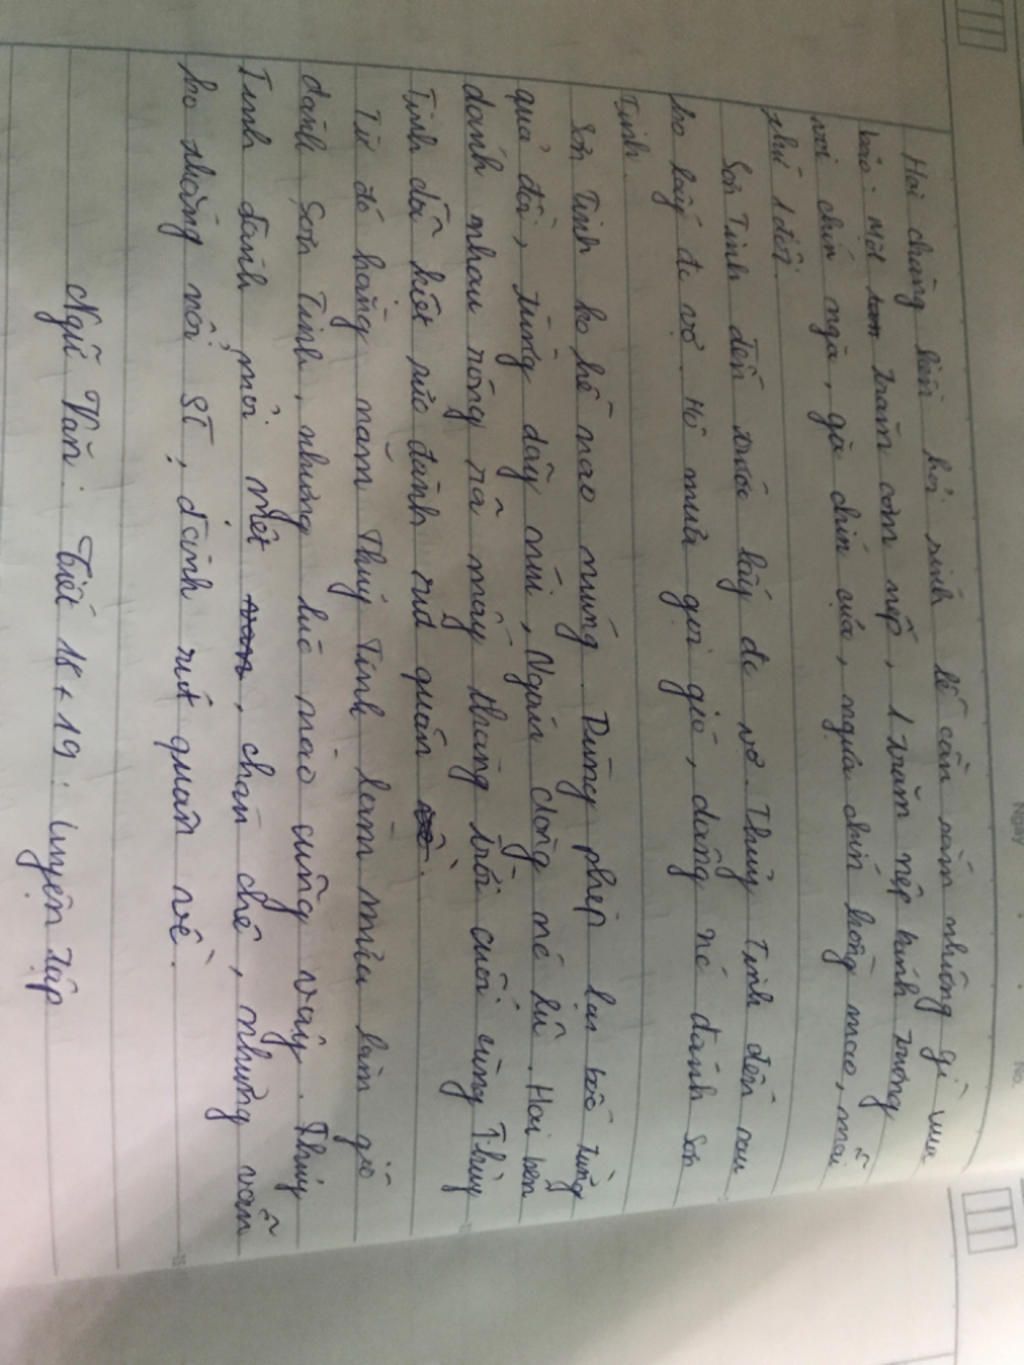 Hai chàng bèn hỏi sính lễ cần sắm những gì vua
bảo: Một trăm cơm nếp, 1 trăm nệp bánh trưng
voi chín ngà, gà chín cựa, ngựa chín hồng mao, mỗi
thứ 1 đôi.
Sơn Tinh đến trước lấy đc vợ. Thủy Tinh đến sau
ko lấy đc vợ. Hô mưa gọi gió, dâng nc đánh Sơn
Tinh.
Sơn Tinh ko hề nao núng. Dùng phép lạ bốc từng
quả đồi, từng dãy núi, Ngăn dòng nc lũ. Hai bên
đánh nhau ròng rã mấy tháng trời cuối cùng Thủy
Tinh dã kiệt sức đành rút quân
Từ đó hằng năm Thuỷ Tinh làm mưa làm gió
đánh Sơn Tinh, nhưng lúc nào cũng vậy. Thủy
Tinh đánh mỏi mệt, chán chê, nhưng vẫn
ko thắng nổi ST, đành rút quân về.
Ngữ Văn: Tiết 18 + 19: Luyện tập
Ngày
No.